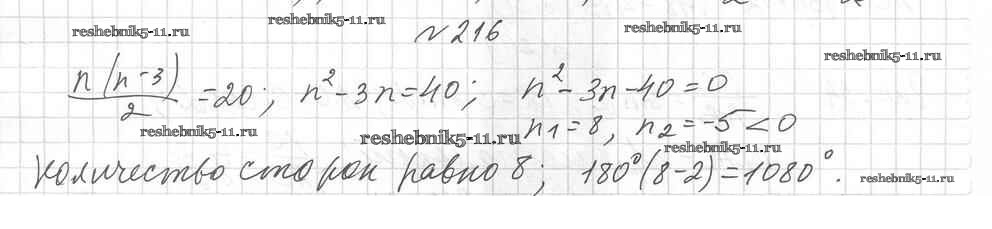 №216
n(n-3)/2 =20; n²-3n=40; n²-3n-40=0
n1=8, n2=-5<0
количество сторон равно 8; 180°(8-2)=1080°.
reshebnik5-11.ru
reshebnik5-11.ru
reshebnik5-11.ru
reshebnik5-11.ru
reshebnik5-11.ru
reshebnik5-11.ru
reshebnik5-11.ru
reshebnik5-11.ru